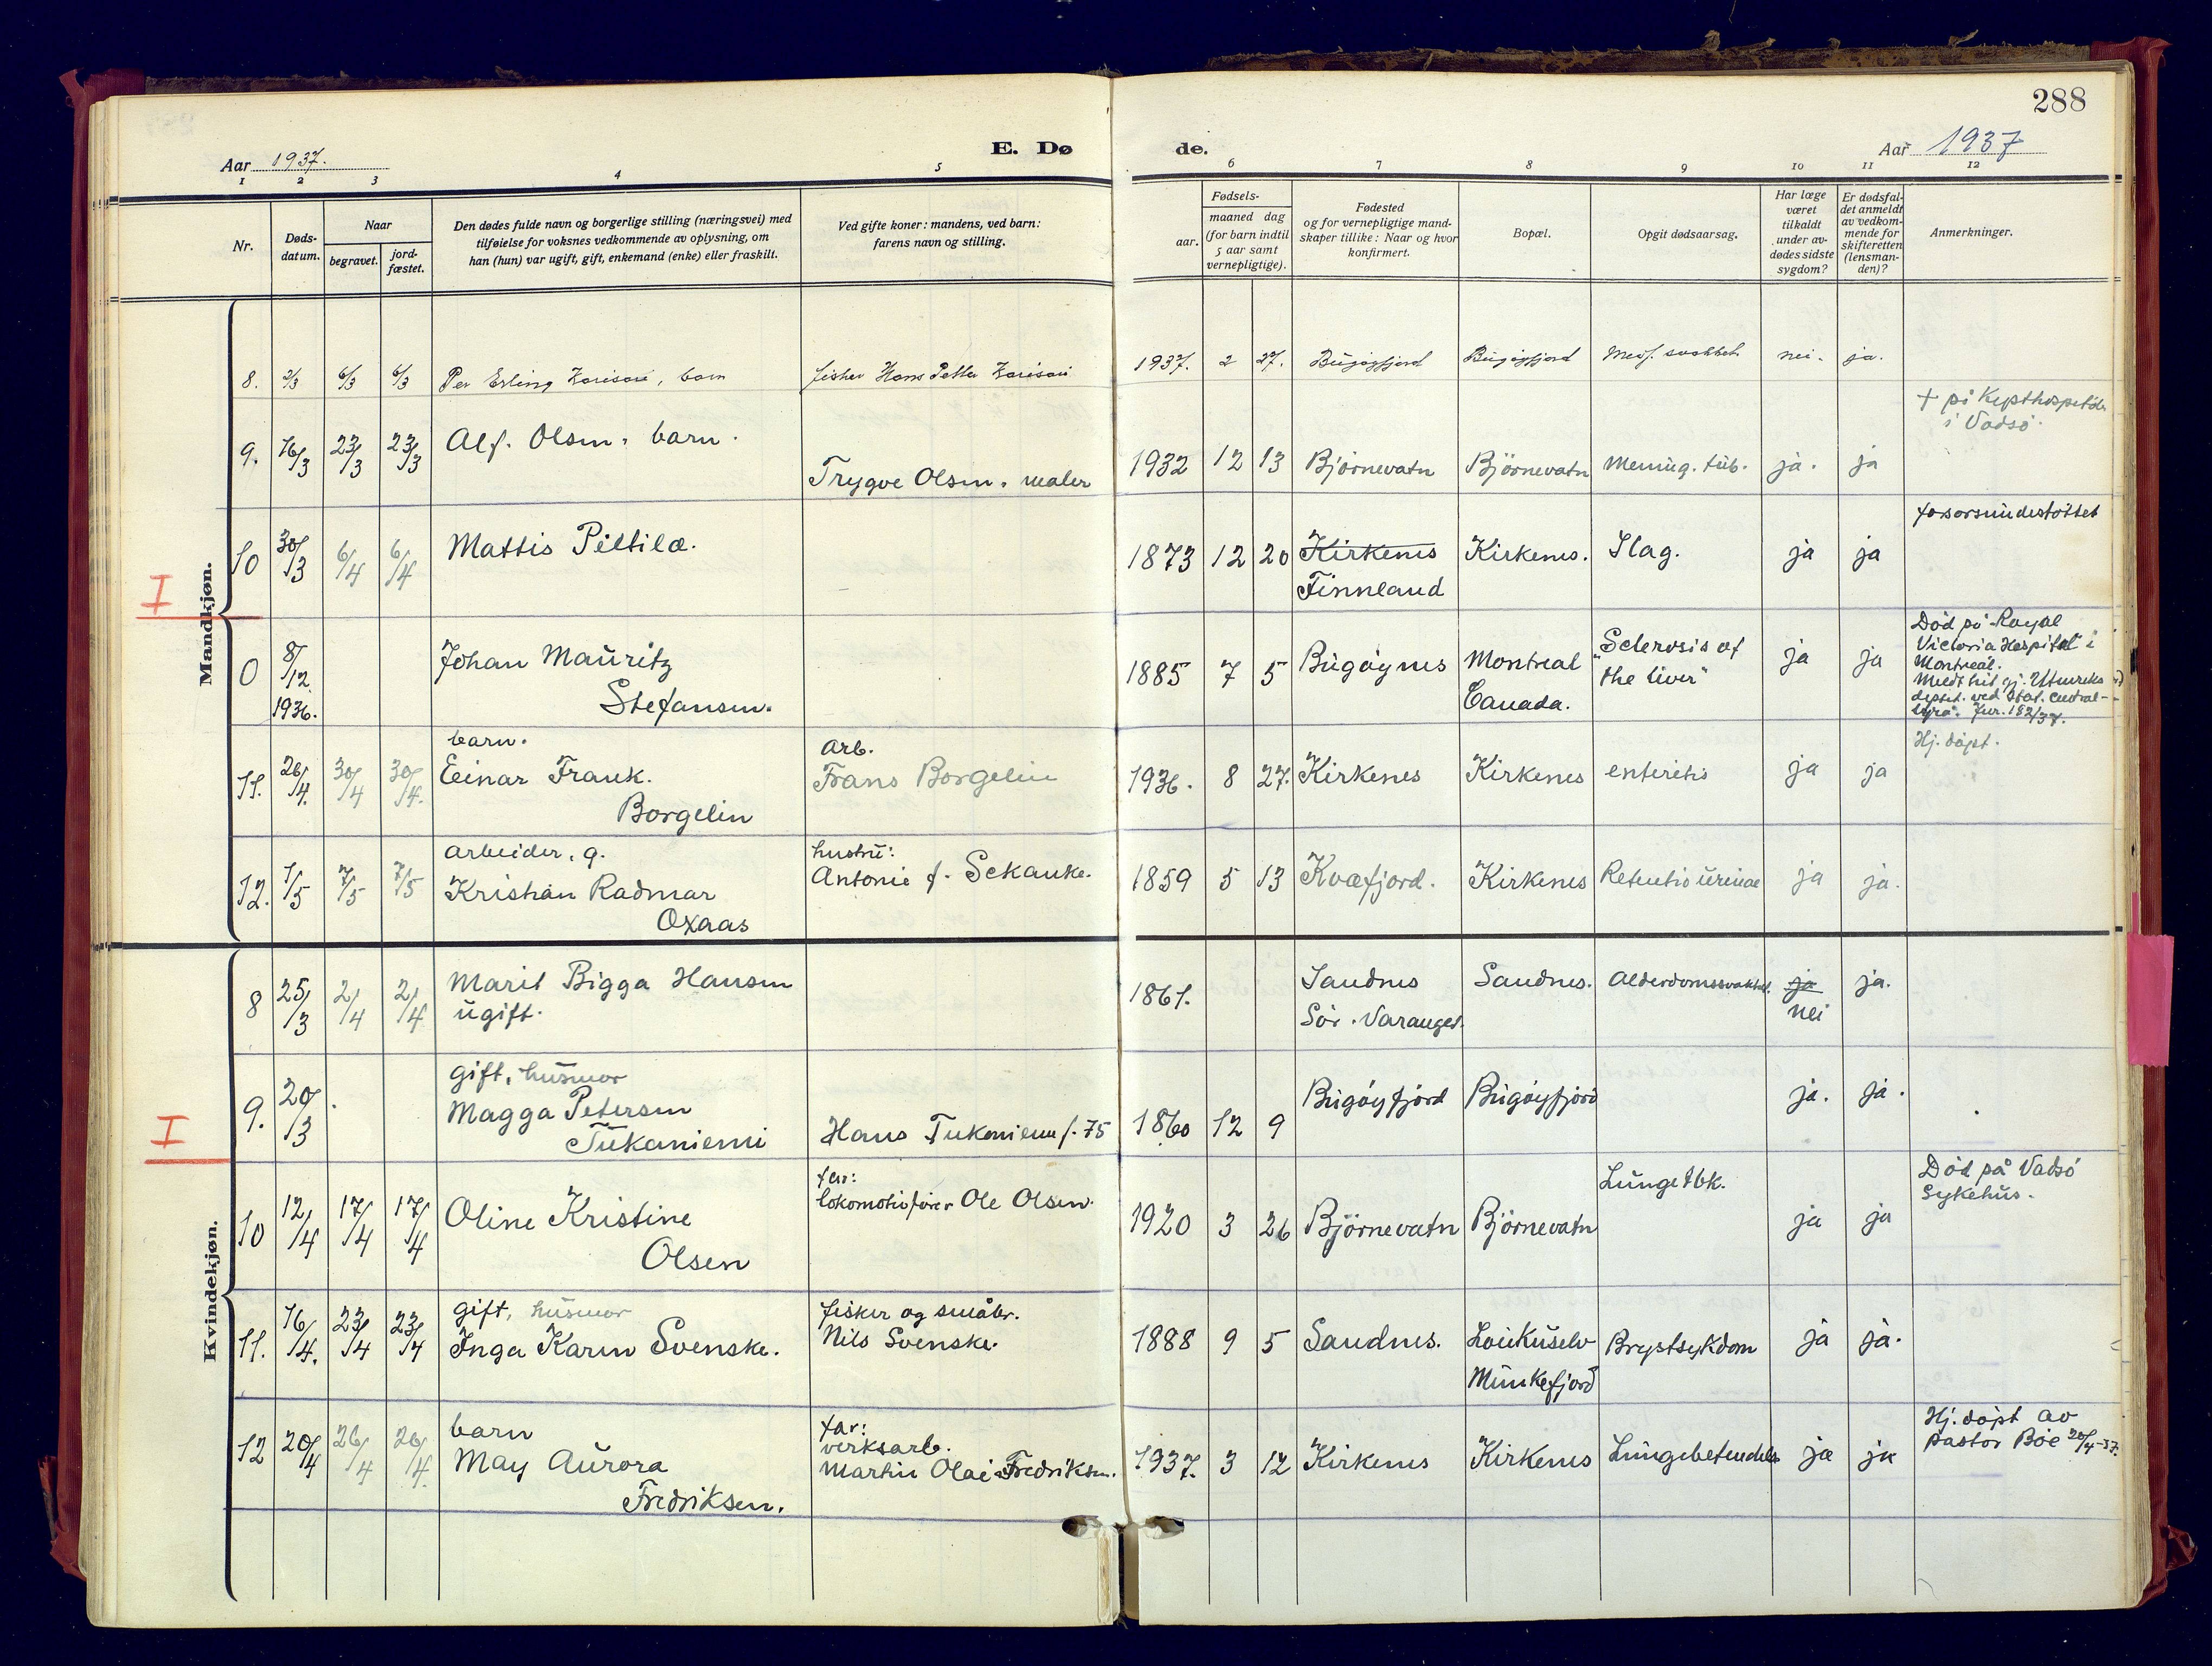 288
Aar 1937.
E. Dø de.
Aar 1937
1 2 3 4 5 6 7 8 9 10 11 12
Nr.
Døds-
datum.
Naar
begravet.
jord-
fæstet.
Den dødes fulde navn og borgerlige stilling (næringsvei) med
tilføielse for voksnes vedkommende av oplysning, om
han (hun) var ugift, gift, enkemand (enke) eller fraskilt.
Ved gifte koner: mandens, ved barn:
farens navn og stilling.
Fødsels-
aar.
maaned dag
(for barn indtil
5 aar samt
vernepligtige).
Fødested
og for vernepligtige mand-
skaper tillike: Naar og hvor
konfirmert.
Bopæl.
Opgit dødsaarsag.
Har læge
været
tilkaldt
under av-
dødes sidste
sygdom?
Er dødsfal-
det anmeldt
av vedkom-
mende for
skifteretten
(lensman-
den)?
Anmerkninger.
Mandkjøn.
I
8. 2/3 6/3 6/3 Per Erling, barn fisker Hans Petter 1937. 2 27. Bugøyfjord Bugøyfjord Medf. svakhet nei. ja.
+ på
i Vadsø.
9. 16/3 23/3 23/3 Alf. Olsen, barn.
Trygve Olsen, maler 1932 12 13 Bjørnevatn Björnevatn Mening. tub. ja. ja
forsorsunderstöttet
10 30/3 6/4 6/4 Mattis Piltilä. 1873 12 20 Kirkenes Kirkenes. Slag. ja ja
Finnland
0 8/12 1936. Johan Mauritz
Stefansen.
1885 7 5 Bugøynes Montreal
Canada.
"Sclerosis of
the liver"
ja ja
Död på Royal
Victoria Hospital i
Montreal.
ved Stat. Central-
byrå. Jur. 182/37.
11. 26/4. 30/4 30/4. barn.
Einar Frank.
Borgelin
arb.
Frans Borgelin
1936. 8 27. Kirkenes Kirkenes enteritis ja ja
Hj. döpt.
12. 1/5 7/5 7/5 arbeider, g.
Kristian Radmar
Oxaas
hustru:
Antonie f. Sekanke.
1859 5 13 Kvæfjord. Kirkenes Retentio urinae ja ja.
Kvindekjøn.
I
8 25/3 2/4 2/4 Marit Bigga Hansen
ugift.
1861. Sandnes
Sör. Varanger.
Sandnes. Alderdomssvakhet. ja
nei
ja.
9. 20/3 gift, husmor
Magga Petersen
Tukaniemi
Hans Tukaniemi f. 75 1860 12 9 Bugøyfjord Bugøyfjord ja. ja.
10 12/4 17/4 17/4 Oline Kristine
Olsen
far:
lokomotivförer Ole Olsen.
1920 3 26 Björnevatn Björnevatn Lunge tbk. ja ja
Död på Vadsö
Sykehus.
11. 16/4. 23/4 23/4 gift, husmor
Inga Karen Svenske.
fisker og småbr.
Nils Svenske.
1888 9 5 Sandnes. Loikuselv
Munkefjord
Brystsykdom ja ja.
12 20/4 26/4 26/4. barn
May Aurora
Fredriksen.
far:
verksarb.
Martin Olai Fredriksen.
1937. 3 12 Kirkenes Kirkenes Lungebetendelse ja ja
Hj. döpt av
pastor Böe 20/4-37.